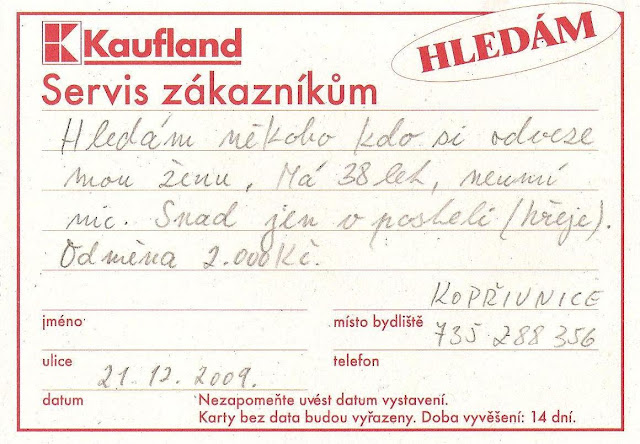 Kaufland
HLEDÁM
Servis zákazníkům
Hledám někoho kdo si odveze
mou ženu, Má 38 let, neumí
nic. Snad jen v posteli (hřeje).
Odměna 2.000Kč.
KOPŘIVNICE
jméno místo bydliště
735 288 356
ulice telefon
21.12.2009.
datum Nezapomeňte uvést datum vystavení.
Karty bez data budou vyřazeny. Doba vyvěšení: 14 dní.